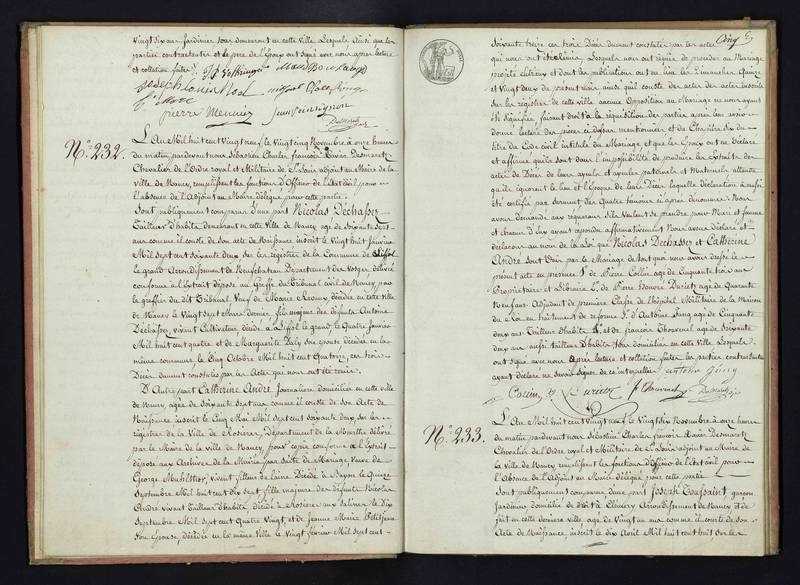 Vingt six ans Jardinier tous demeurant en cette Ville Lesquels Ainsi que les
parties contractantes et le pere de l'Epoux ont signé avec nous après lecture
et collation faites
Joseph Louis Noel
pierre Munier Jean Poinsignon
Desmaretz
N° 232.
L'An Mil huit cent Vingt neuf, le Vingt cinq Novembre à onze heures
du matin, pardevant nous Sébastien Charles françois Xavier Desmaretz
Chevalier de l'Ordre royal et Militaire de St Louis adjoint au Maire de la
Ville de Nancy, remplissant les fonctions d'Officier de l'état civil pour
l'absence de l'Adjoint au Maire délégué pour cette partie.
Sont publiquement comparus d'une part Nicolas Déchasser
Tailleur d'habits, demeurant en cette Ville de Nancy agé de Soixante sept
ans comme il conste de son acte de Naissance inscrit le Vingt huit Janvier
Mil sept cent soixante deux sur les registres de la Commune de Liffol
le grand, Arrondissement de Neufchateau Département des Vosges, délivré
conforme à l'Extrait déposé au Greffe du Tribunal civil de Nancy par
le greffier du dit Tribunal, Veuf de Marie decédée en cette ville
de Nancy le Vingt sept dernier, fils majeur des défunts Antoine
Déchasser, vivant Cultivateur, décédé à Liffol le grand, le Quatre Janvier
Mil huit cent quatre et de Marguerite son epouse decédée en la
même commune le Cinq Octobre Mil huit cent Quatorze, ces trois
Décès dument constatés par les Actes qui nous ont été remis.
D'Autre part Catherine André Journalière domiciliée en cette ville
de Nancy, agée de Soixante sept ans comme il conste de son Acte de
Naissance inscrit le Cinq Mai Mil sept cent soixante deux sur les
registres de la Ville de Rosieres, Département de la Meurthe délivré
par le Maire de la Ville de Nancy, pour copie conforme à l'Extrait
déposé aux Archives de la Mairie par suite de Mariage, Veuve de
George vivant fileur de laine décédé à Bayon le Quinze
Septembre Mil huit cent Dix sept, fille majeure des défunts Nicolas
André vivant Tailleur d'habits, décédé à Rosieres aux Salines le Dix
Septembre Mil sept cent Quatre Vingt, et de Jeanne Marie Petitjean
son Epouse, décédée en la même Ville le Vingt fevrier Mil sept cent
soixante treize ces trois Décès dument constatés par les actes
qui nous ont été remis, Lesquels nous ont requis de procéder au Mariage
projeté entreux et dont les publications ont eu lieu les Dimanches Quinze
et Vingt deux du présent mois ainsi qu'il conste des actes des actes inscrits
sur les registres de cette ville, aucune Opposition au Mariage ne nous ayant
été signifiée, faisant droit à la réquisition des parties après leur avoir
donné lecture des pièces ci dessus mentionnées et du Chapitre six du
titre du Code civil intitulé du Mariage, et que les Epoux ont eu déclaré
et affirmé qu'ils sont dans l'impossibilité de produire les Extraits des
actes de Décès de leurs ayeuls et ayeules paternels et Maternels, attendu
qu'ils ignorent le lieu et l'époque de leurs Décès laquelle déclaration a aussi
été certifiée par serment des Quatre témoins ci après dénommés. Nous
avons demandé aux requérans s'ils veulent se prendre pour Mari et femme
et chacun d'eux ayant répondu affirmativement Nous avons déclaré et
déclarons au nom de la Loi que Nicolas Dechasser et Catherine
André sont Unis par le Mariage, de tout quoi nous avons dressé le
présent acte en presence 1° de Pierre Collin agé de Cinquante trois ans
Proprietaire et Libraire 2° de Pierre Honoré Durieux de Quarante
Neuf ans Adjudant de premiere Classe de l'hopital Militaire de la Maison
du Roi en traitement de réforme 3° d'Antoine Guing agé de Cinquante
deux ans Tailleur d'habits 4° et de françois Thouvenel agé de Soixante
deux ans aussi tailleur D'habits, tous domiciliés en cette Ville Lesquels
ont signé avec nous après lecture et collation faites les parties contractantes
ayant déclaré ne savoir signer de ce interpellées antoine Guing
Collin Durieux f Thouvenel Desmaretz
N° 233.
L'An Mil huit cent Vingt neuf, le Vingt six Novembre à onze heures
du matin pardevant nous Sébastien Charles françois Xavier Desmaretz
Chevalier de l'Ordre royal et Militaire de St Louis adjoint au Maire de
la Ville de Nancy, remplissant les fonctions d'Officier de l'état civil pour
l'Absence de l'Adjoint au Maire délégué pour cette partie
Sont publiquement comparus d'une part Joseph Toussaint garçon
Jardinier, domicilié de droit à fleville Arrondissement de Nancy et de
fait en cette derniere ville, agé de Vingt un ans comme il conste de son
Acte de Naissance, inscrit le Dix Avril Mil huit cent huit sur les